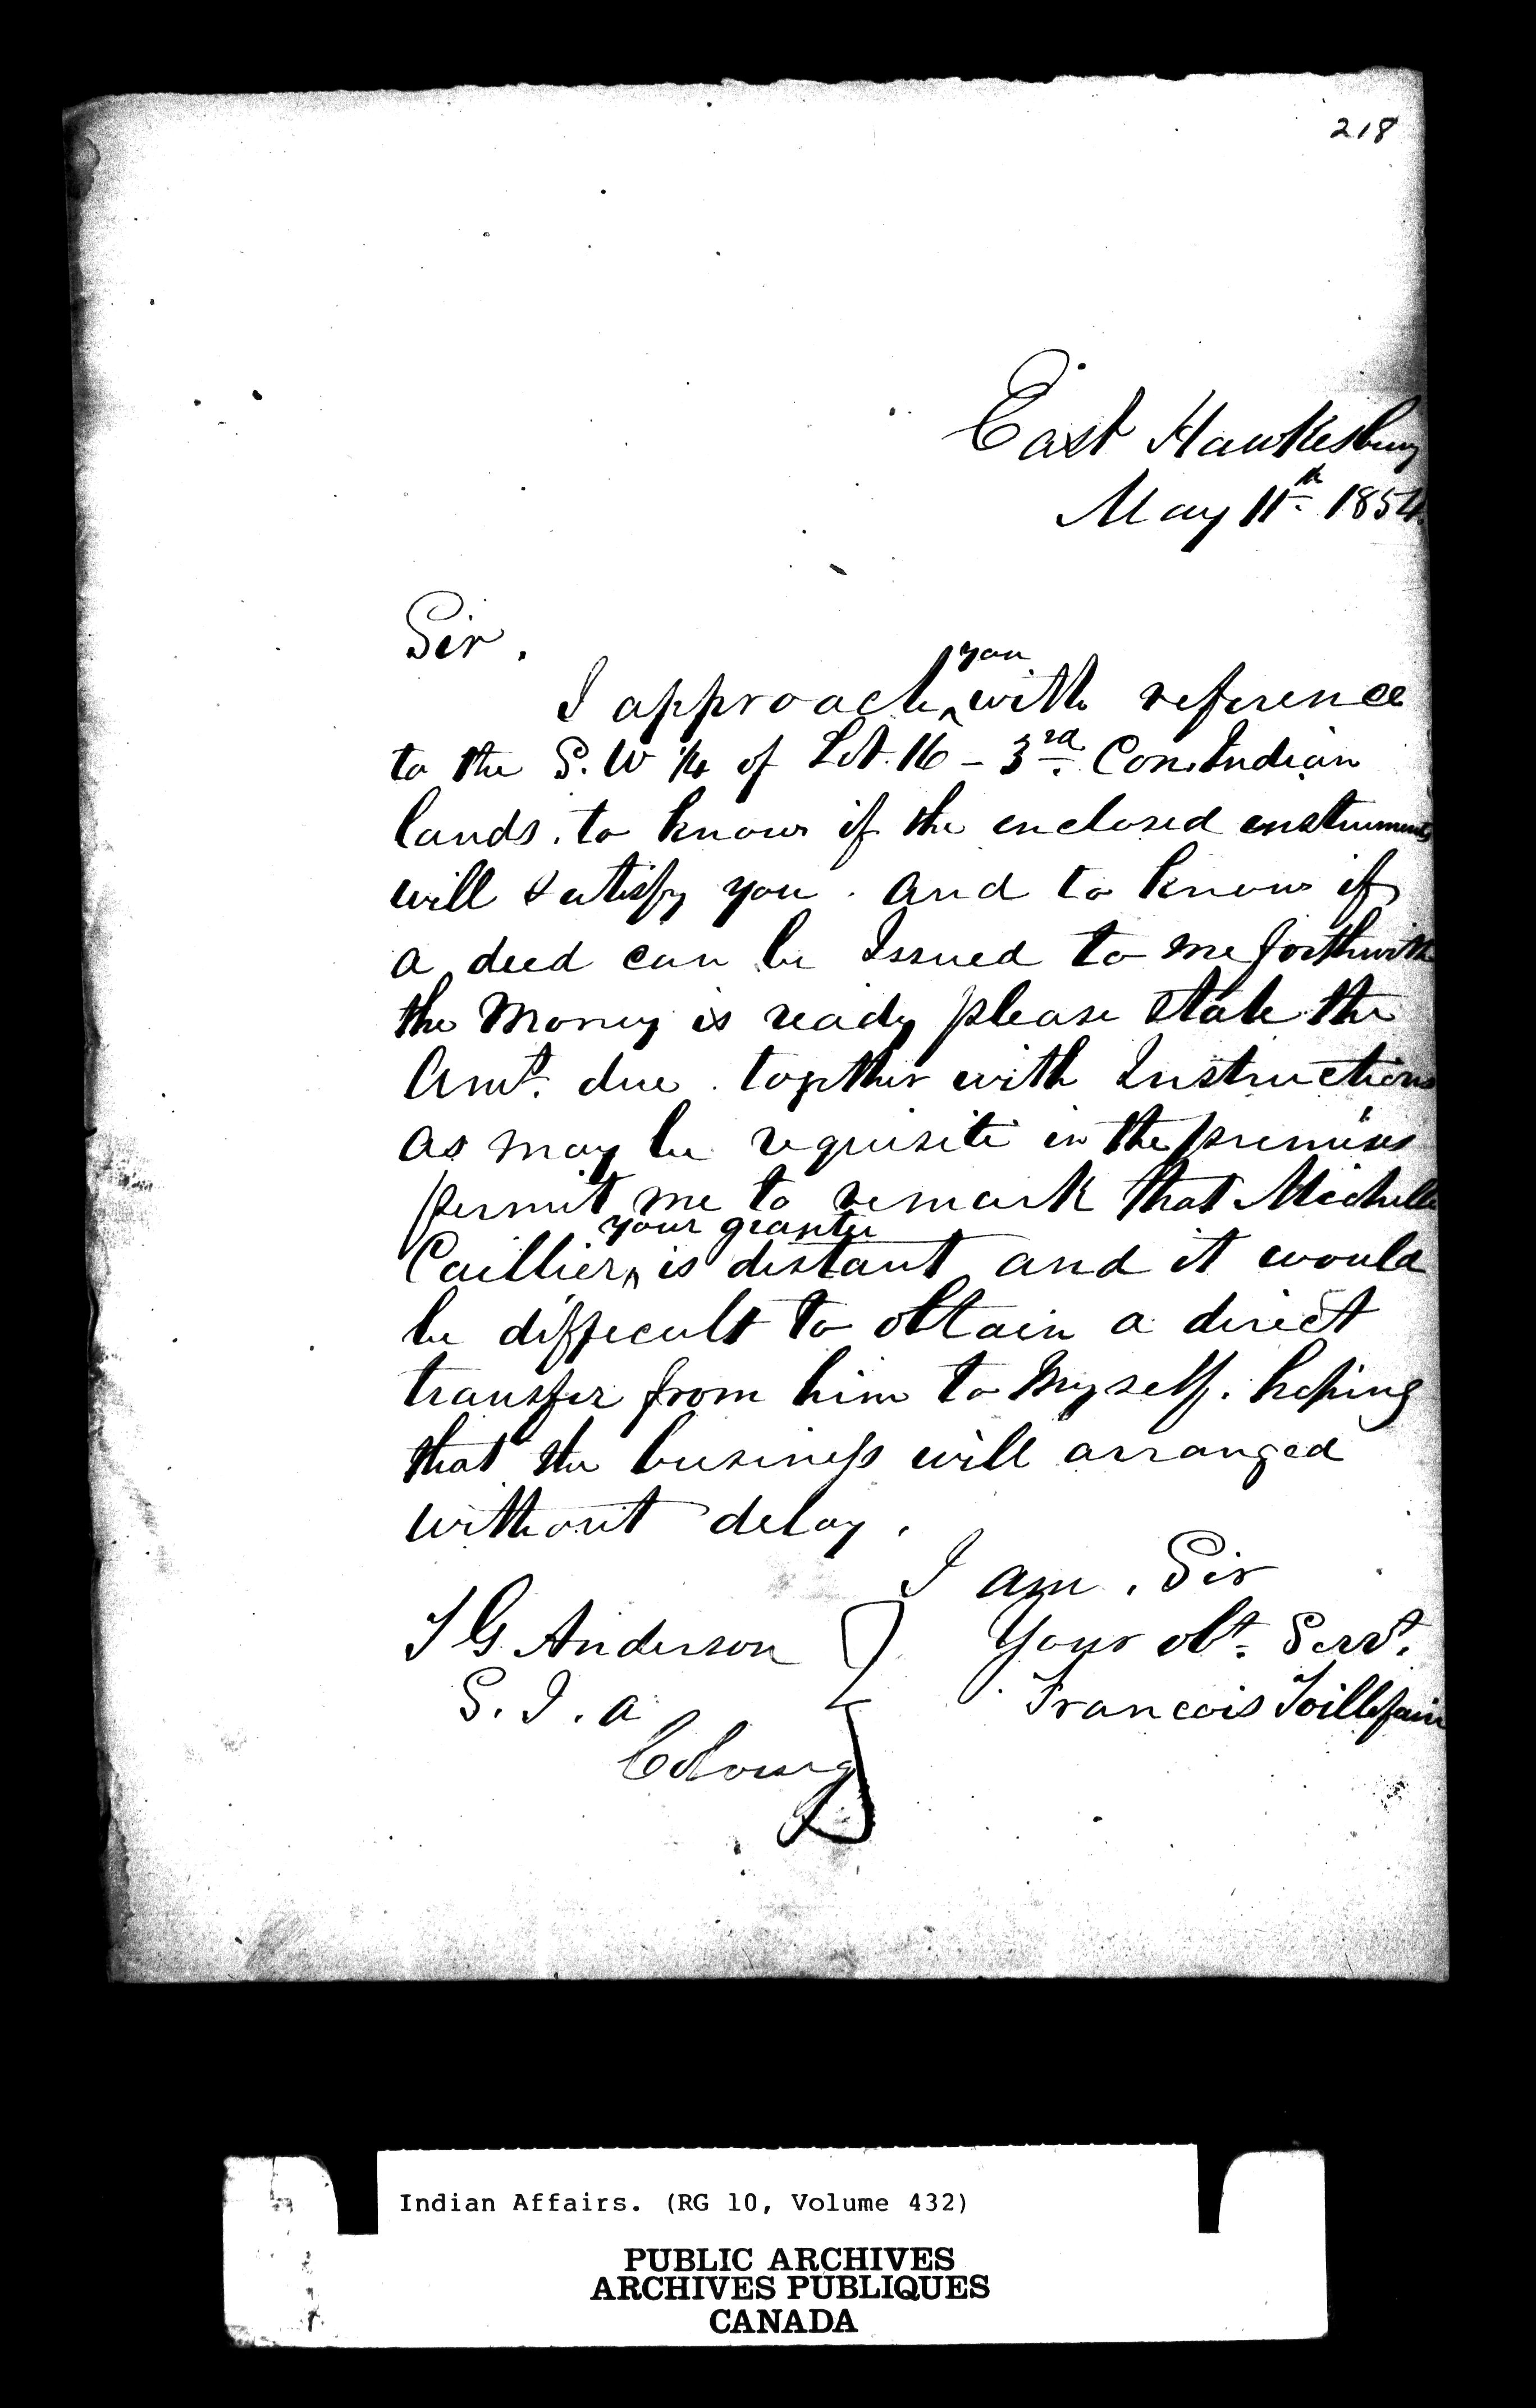 218
East Hawkesbury
May 11th 1854
Sir.
I approach you with reference
to the S. W 1/4 of Lot. 16 - 3rd. Con. Indian
lands. to know if the enclosed enstruments
will satisfy you. and to know if
a deed can be Issued to me forthwith
the Money is ready please state the
Amt. due. together with Instructions
as may be requisite in the premises
permit me to remark that Michelle
Caillier, your grantee is distant and it would
be difficult to obtain a direct
transfer from him to Myself. hoping
that the business will arranged
without delay.
I am. Sir
T G Anderson
Your obt. Servt.
S. I. a
Francois
Cobourg
Indian Affairs. (RG 10, Volume 432)
PUBLIC ARCHIVES
ARCHIVES PUBLIQUES
CANADA